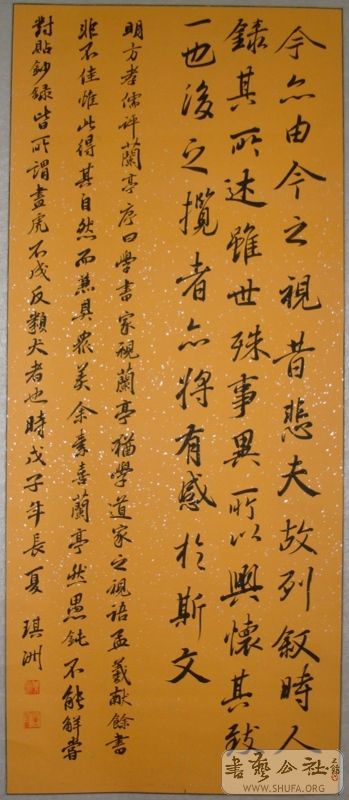 今亦由今之視昔悲夫故列敘時人
錄其所述雖世殊事異所以興懷其致
一也後之攬者亦將有感於斯文
明方孝儒評蘭亭序曰學書家視蘭亭猶學道家之視語孟羲獻餘書
非不佳惟此得其自然而兼具眾美余素喜蘭亭然愚鈍不能解嘗
對貼鈔錄皆所謂畫虎不成反類犬者也時戊子年長夏琪洲
書藝公社
WWW.SHUFA.ORG